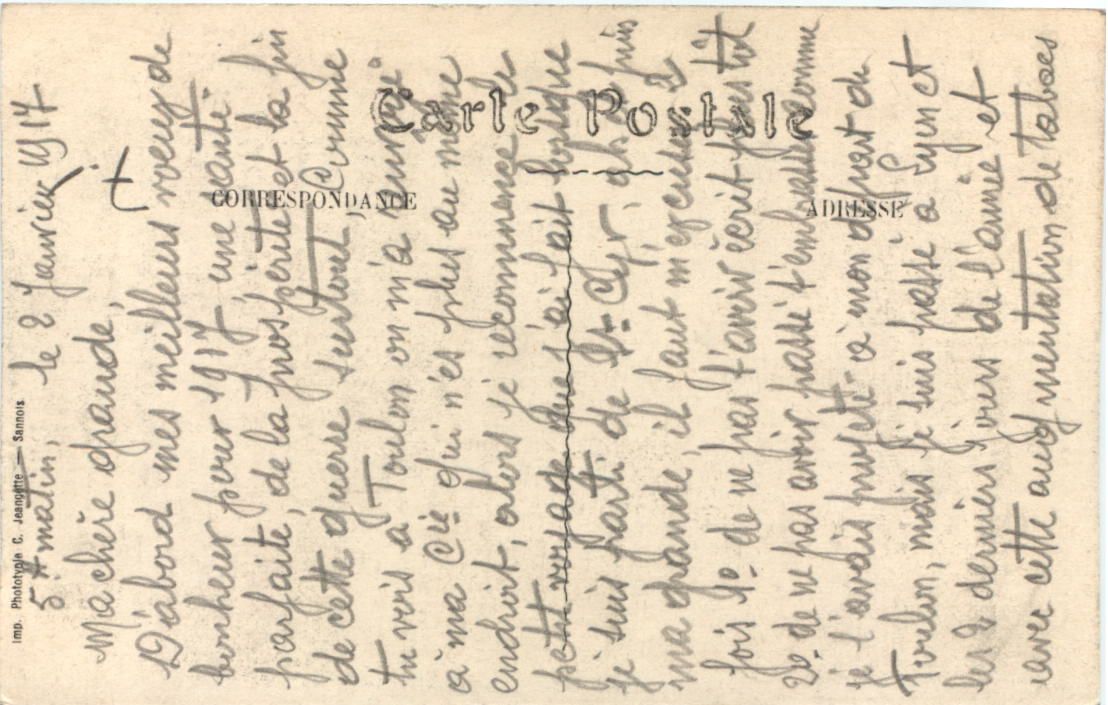 Carte Postale
CORRESPONDANCE
ADRESSE
Imp. Phototypie C. Jeangette — Sannois.
5H matin, le 2 Janvier 1917
t
Ma chère grande,
D'abord mes meilleurs voeux de
bonheur pour 1917, une santé
parfaite, de la prospérité et la fin
de cette guerre surtout, Comme
tu vois à Toulon on m'a ramené
à ma Cie qui n'es plus au même
endroit, alors je recommence le
petit voyage que j'ai fait lorsque
je suis parti de St-Cyr, ah
ma grande, il faut m'excuser 2
fois 1o- de ne pas t'avoir écrit plus tôt
2o- de ne pas avoir passé t'embrasser comme
je l'avais projeté à mon départ de
Toulon, mais je suis passé à Lyon et
les 2 derniers jours de l'année et
avec cette augmentation de tabacs